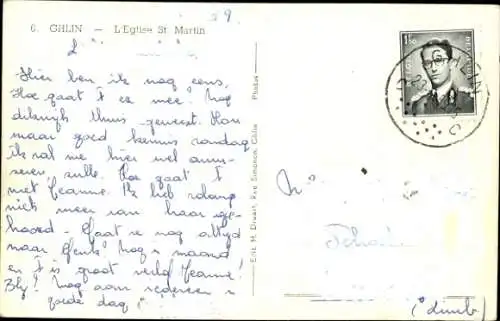 6. GHLIN — L'Eglise St. Martin
Hier ben ik nog eens,
Hoe gaat 't er mee? Nog
dikwijls thuis geweest. Hou
maar goed kermis vandaag
ik zal me hier wel amu-
seren, zulle. Hoe gaat 't
met Jeanne. Ik heb zolang
niets meer van haar ge-
hoord. Gaat ze nog altijd
naar Genk? Nog 1 maand
en 't is groot verlof Jeanne!
Bij! Nog aan iedereen 1
goede dag.
Edit. H. Duwart, Rue Simonon, Ghlin
Photos
GHLIN
(Limb